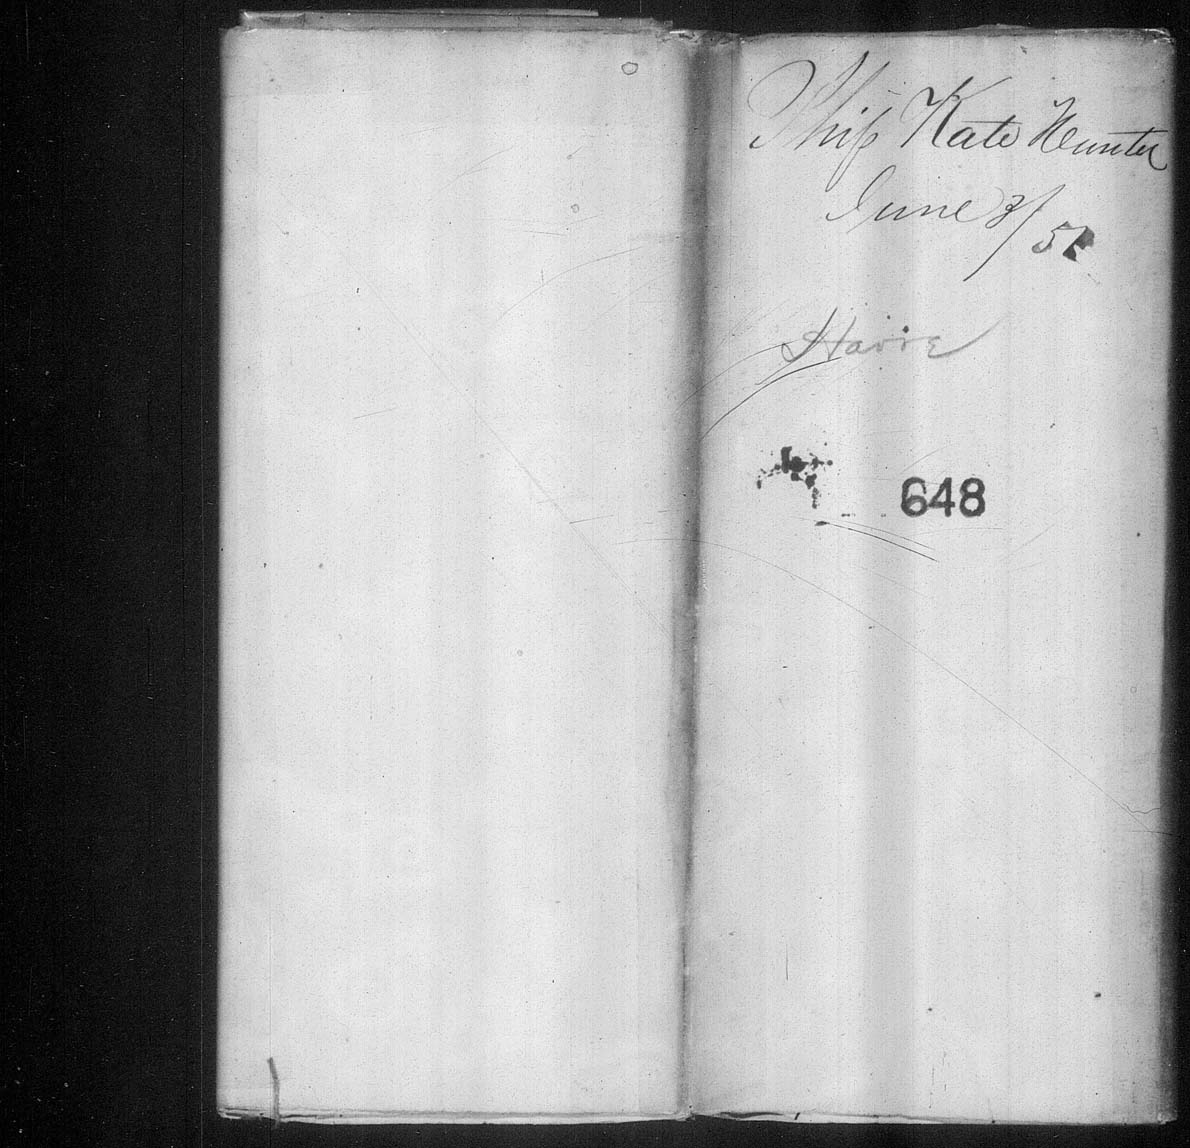 Ship Kate Hunter
June 3/51
Havre
648